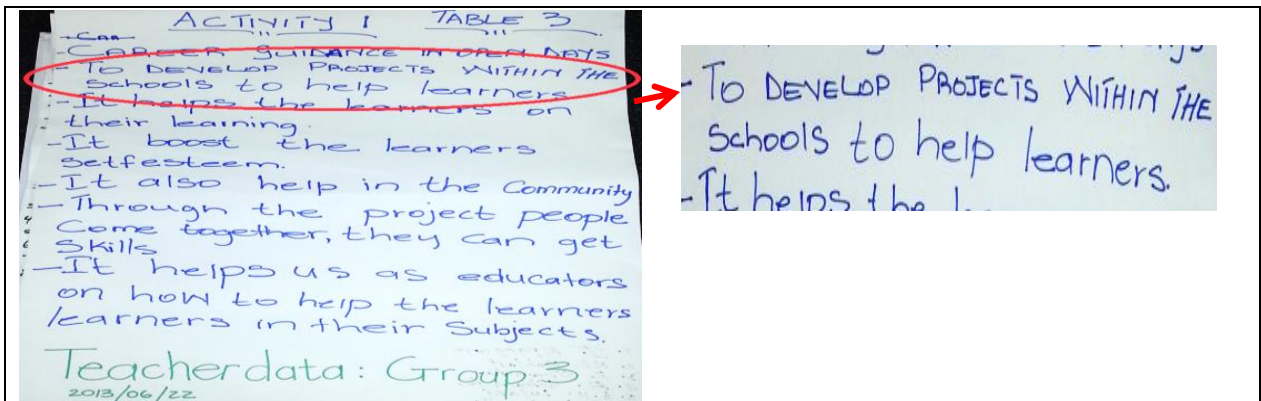 ACTIVITY 1 TABLE 3
- CAREER GUIDANCE IN OPEN DAYS
- TO DEVELOP PROJECTS WITHIN THE
schools to help learners
- It helps the learners on
their learning.
- It boost the learners
setfesteem.
- It also help in the Community
- Through the project people
Come together, they can get
Skills
- It helps us as educators
on how to help the learners
learners in their Subjects.
Teacherdata: Group 3
2013/06/22
- TO DEVELOP PROJECTS WITHIN THE
schools to help learners.
- It helps the